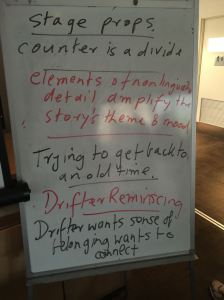 Stage props.
counter is a divide
elements of nonlinguistic
detail amplify the
story's theme & mood
Trying to get back to
an old time.
Drifter Reminiscing
Drifter wants sense of
belonging wants to
connect